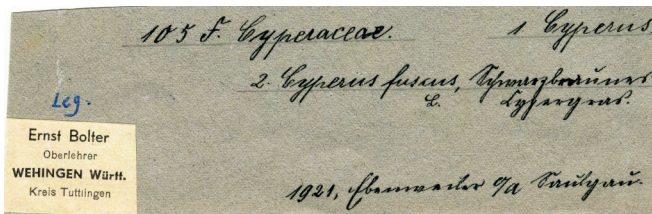 105 F. Cyperaceae. 1 Cyperus
2. Cyperus fuscus, Schwarzbraunes
L. Cypergras.
Leg.
Ernst Bolter
Oberlehrer
WEHINGEN Württ.
Kreis Tuttlingen
1921, Ebenweiler O/A Saulgau.